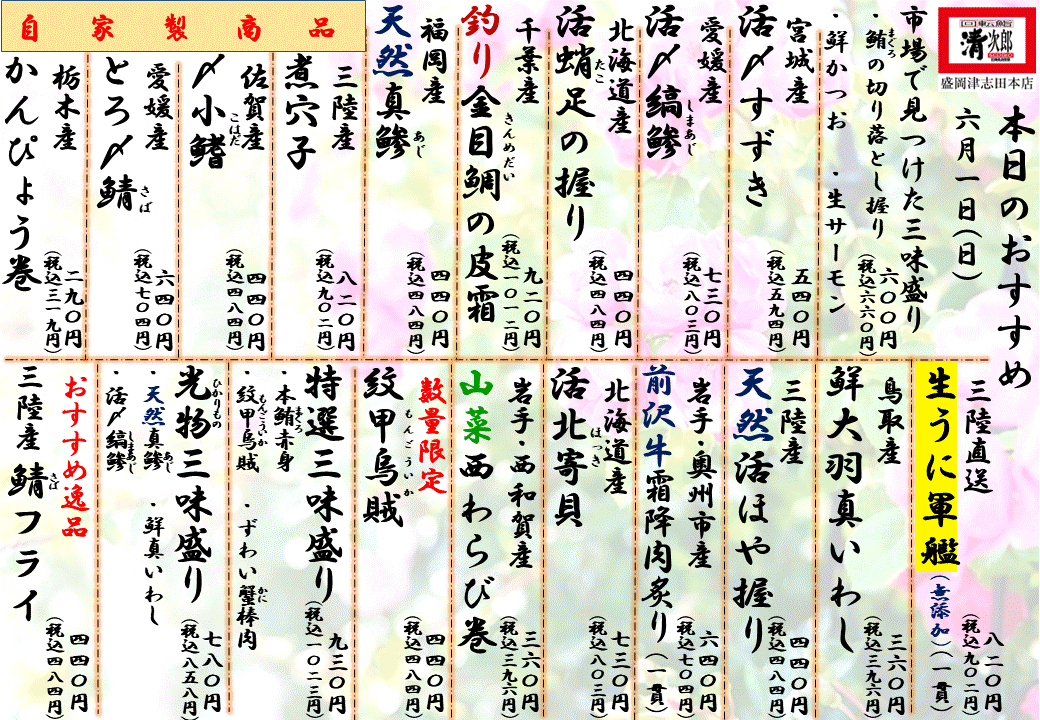 回転鮨
清次郎
盛岡津志田本店
本日のおすすめ
六月一日(日)
市場で見つけた三味盛り
・鮪の切り落とし握り
まぐろ
・鮮かつお ・生サーモン
六〇〇円
(税込六六〇円)
宮城産
活〆すずき
五四〇円
(税込五九四円)
愛媛産
活〆縞鯵
しまあじ
七三〇円
(税込八〇三円)
北海道産
活蛸足の握り
たこ
四四〇円
(税込四八四円)
千葉産
釣り金目鯛の皮霜
きんめだい
九二〇円
(税込一〇一二円)
福岡産
天然真鯵
あじ
四四〇円
(税込四八四円)
自家製商品
三陸産
煮穴子
八二〇円
(税込九〇二円)
佐賀産
〆小鰭
こはだ
四四〇円
(税込四八四円)
愛媛産
とろ〆鯖
さば
六四〇円
(税込七〇四円)
栃木産
かんぴょう巻
二九〇円
(税込三一九円)
三陸直送
生うに軍艦
(無添加)(一貫)
八二〇円
(税込九〇二円)
鳥取産
鮮大羽真いわし
三六〇円
(税込三九六円)
三陸産
天然活ほや握り
四四〇円
(税込四八四円)
岩手・奥州市産
前沢牛霜降肉炙り(一貫)
六四〇円
(税込七〇四円)
北海道産
活北寄貝
ほっき
七三〇円
(税込八〇三円)
岩手・西和賀産
山菜西わらび巻
三六〇円
(税込三九六円)
数量限定
紋甲烏賊
もんごういか
四四〇円
(税込四八四円)
特選三味盛り
・本鮪赤身
まぐろ
・紋甲烏賊 ・ずわい蟹棒肉
もんごういか かに
九三〇円
(税込一〇二三円)
光物三味盛り
ひかりもの
・天然真鯵 ・鮮真いわし
あじ
・活〆縞鯵
しまあじ
七八〇円
(税込八五八円)
おすすめ逸品
三陸産 鯖フライ
さば
四四〇円
(税込四八四円)